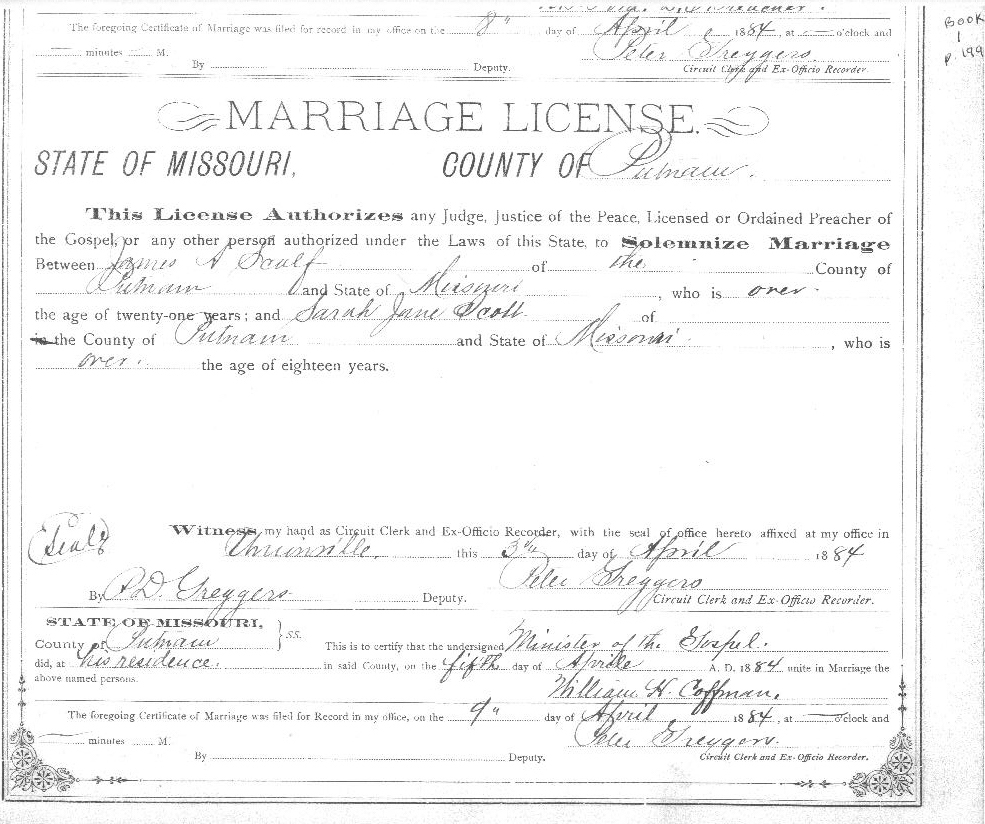 The foregoing Certificate of Marriage was filed for record in my office on the 8" day of April 1884, at — o'clock and
— minutes — M. Peter Greggers
By Deputy. Circuit Clerk and Ex-Officio Recorder.
BOOK
1
p. 199
MARRIAGE LICENSE.
STATE OF MISSOURI, COUNTY OF Putnam.
This License Authorizes any Judge, Justice of the Peace, Licensed or Ordained Preacher of
the Gospel, or any other person authorized under the Laws of this State, to Solemnize Marriage
Between James A Scalf of the County of
Putnam and State of Missouri, who is over
the age of twenty-one years; and Sarah Jane Scott of
in the County of Putnam and State of Missouri, who is
over the age of eighteen years.
Witness my hand as Circuit Clerk and Ex-Officio Recorder, with the seal of office hereto affixed at my office in
(Seal) Unionville this 3rd day of April 1884
Peter Greggers
By P.D. Greggers Deputy. Circuit Clerk and Ex-Officio Recorder.
STATE OF MISSOURI,
County of Putnam } ss. This is to certify that the undersigned Minister of the Gospel.
did, at his residence. in said County, on the fifth day of Aprile A. D. 1884 unite in Marriage the
above named persons. William H. Coffman.
The foregoing Certificate of Marriage was filed for Record in my office, on the 9" day of April 1884, at — o'clock and
— minutes M. Peter Greggers
By Deputy. Circuit Clerk and Ex-Officio Recorder.